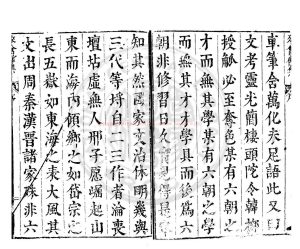 車筆舍萬化未足語此又
文考靈光蘭棲頭陀令韓
授觚必至奪色某有六朝之
才而無其學某有六朝之學
而無其才才學具而後爲六
朝非修習日久何有於我哉
知其然國家文治休明幾與
三代等埒自二三作者淪喪
壇坫虛無人邢子愿崛起山
東而海内傾鄉之如岱宗之
長五嶽如東海之表大風其
文出周秦漢晉諸家殊非六